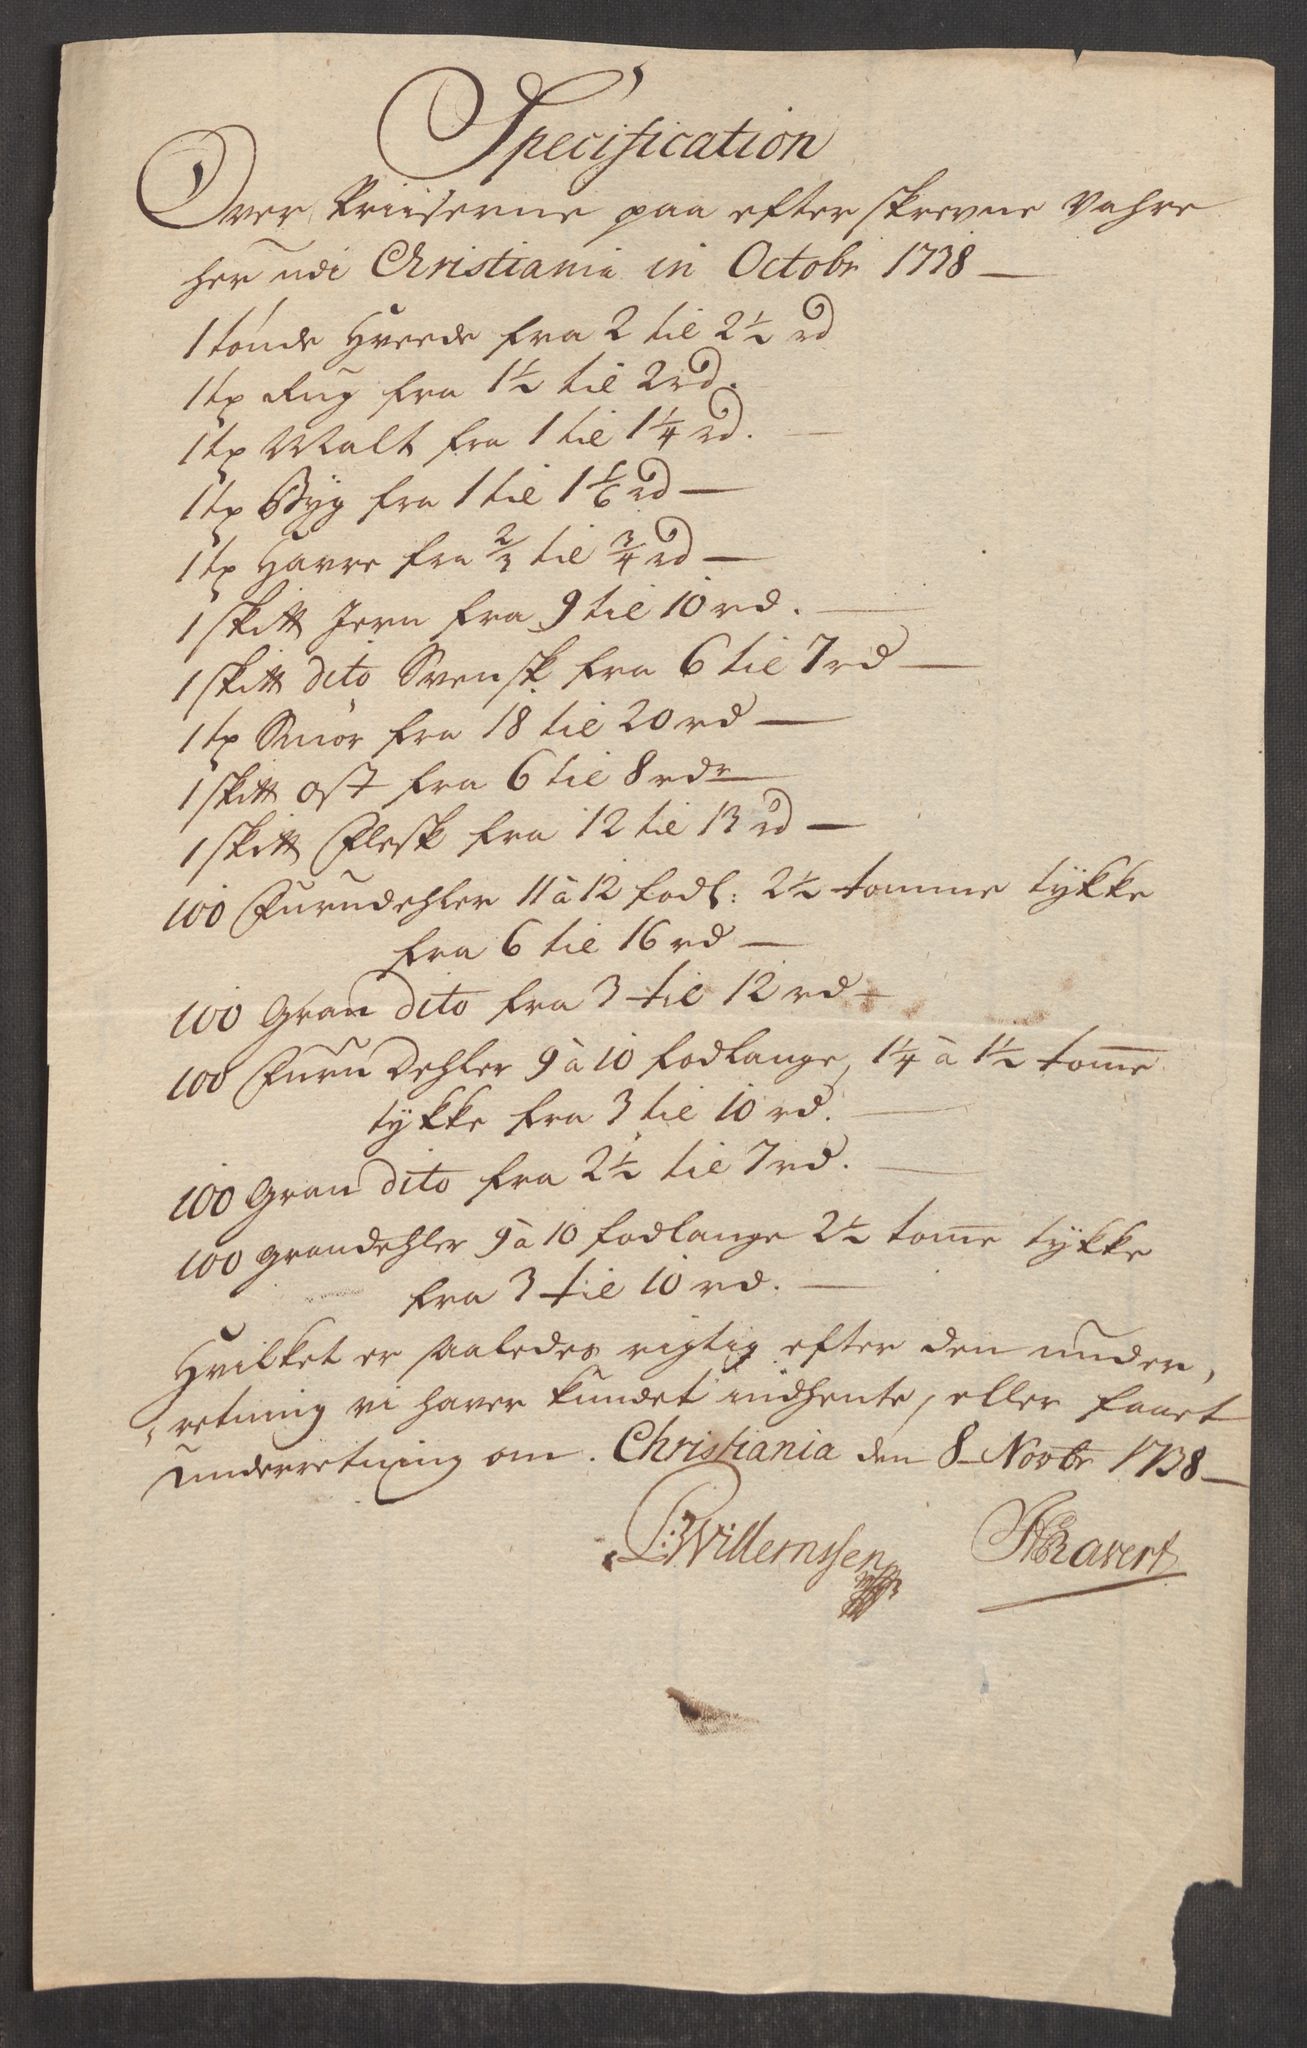 Specification
Over Priiserne paa efterskrevne Vahre
her udi Christiania in Octobr 1738 —
1 tønde Hvede fra 2 til 2½ rd
1 tø Rug fra 1½ til 2 rd.
1 tø Malt fra 1 til 1¼ rd. —
1 tø Byg fra 1 til 1 1/6 rd —
1 tø Havre fra 2/3 til ¾ rd —
1 skltt Jern fra 9 til 10 rd. —
1 skltt dito Svensk fra 6 til 7 rd —
1 tø Smør fra 18 til 20 rd —
1 skltt ost fra 6 til 8 rdr
1 skltt Flesk fra 12 til 13 rd —
100 Furudehler 11 à 12 fodl: 2½ tomme tykke
fra 6 til 16 rd —
100 Gran dito fra 3 til 12 rd —
100 Furu Dehler 9 à 10 fodlange, 1¼ à 1½ tom̅e
tykke fra 3 til 10 rd. —
100 Gran dito fra 2½ til 7 rd. —
100 grandehler 9 à 10 fodlange 2½ tom̅e tykke
fra 3 til 10 rd. —
Hvilket er saaledes rigtig efter den under,
,retning vi haver kundet indhente, eller faaet
underretning om. Christiania den 8 Novbr 1738 —
Willemssen Ravert